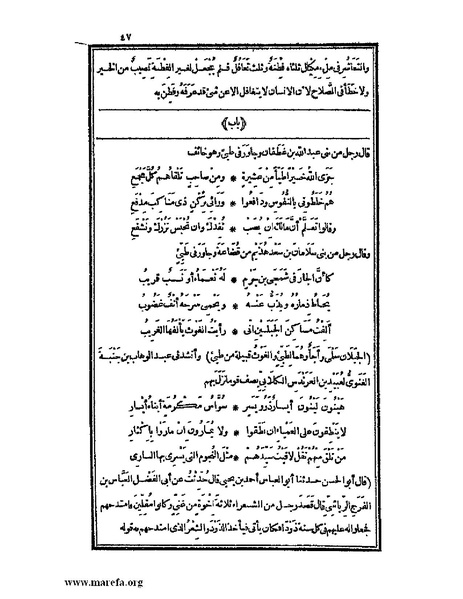 ٤٧
والتعاشر في ملء مكيال ثلثاه فطنة وثلث تغافل فلم يجعل لغير الفطنة نصيبا من الخير
ولا حظا في الصلاح لأن الانسان لا يتغافل الا عن شئ قد عرفه وفطن به
﴿باب﴾
قال رجل من بنى عبد الله بن غطفان وجاور في طيئ وهو خائف
جزى الله خيرا طيئا من عشيرة * ومن صاحب تلقاهم كل مجمع
هم خلطونى بالنفوس ودافعوا * ورائى بركن ذى مناكب مدفع
وقالوا تعلم أن مالك ان يصب * نفدك وان تحبس نزرك ونشفع
وقال رجل من بنى سلامان بن سعد هذيم من قضاعة وجاور في طيئ
كأن الجار في شمجى بن جرم * له نعماء أو نسب قريب
يحاط ذماره ويذب عنه * ويحمى سرحه أنف غضوب
ألفت مساكن الجبلين انى * رأيت الغوث يألفها الغريب
(الجبلان سلمى وأجأ وهما لطيئ والغوث قبيلة من طيئ) وأنشدنى عبد الوهاب بن جنبة
الغنوى لعبيد بن العرندس الكلابى يصف قوما نزل بهم
هينون لينون أيسار ذوو يسر * سواس مكرمة أبناء أيسار
لا ينطقون على العمياء ان نطقوا * ولا يمارون ان ماروا بإكثار
من تلق منهم تقل لاقيت سيدهم * مثل النجوم التى يسرى بها السارى
(قال أبو الحسن حدثنا أبو العباس أحمد بن يحيى قال حدثت عن أبى الفضل العباس بن
الفرج الرياشى قال قصد رجل من الشعراء ثلاثة اخوة من غنى وكانوا مقلين فامتدحهم
فجعلوا له عليهم في كل سنة ذودا فكان يأتى فيأخذ الذود والشعر الذى امتدحهم به قوله
www.marefa.org